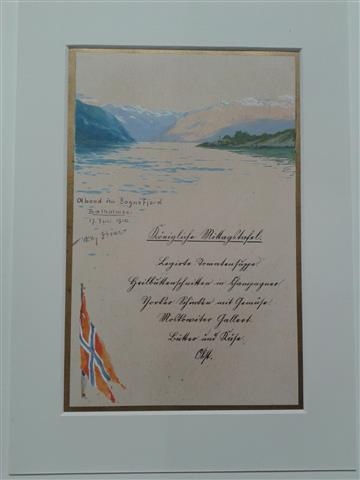 Abend im Sognefjord
Balholmen
17. Juli 1912
Königliche Mittagstafel.
Legirte Tomatensuppe
Heilbuttenschnitten in Champagner
Yorker Schinken mit Gemüse
Moskowiter Gallert.
Butter und Käse.
Obst.